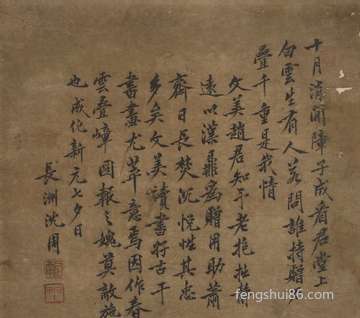 十月清霜障子成看君堂上
白雲生有人若問誰持贈
疊千重是我情
文美趙君知予老抱拙
遠以漢鼎為贈用助蕭
齋日長焚沉悅性其忠
多矣文美讀書好古千
書畫尤萃意焉因作春
雲疊嶂圖報之媿莫敵施
也成化新元七夕日
長洲沈周
fengshui86.com